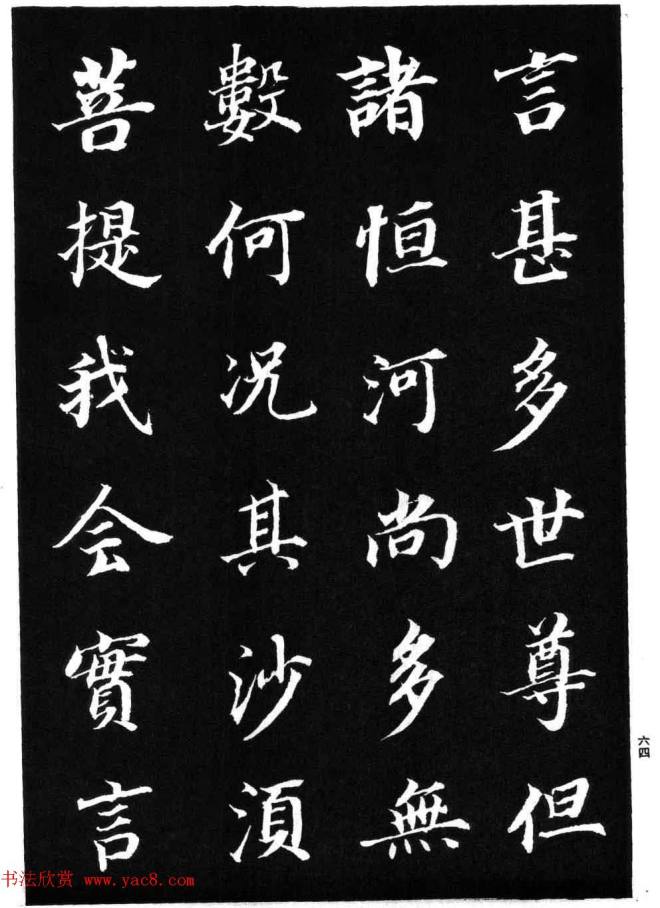 言甚多世尊但
諸恒河尚多無
數何况其沙湏
菩提我会實言
六四
书法欣赏 www.yac8.com